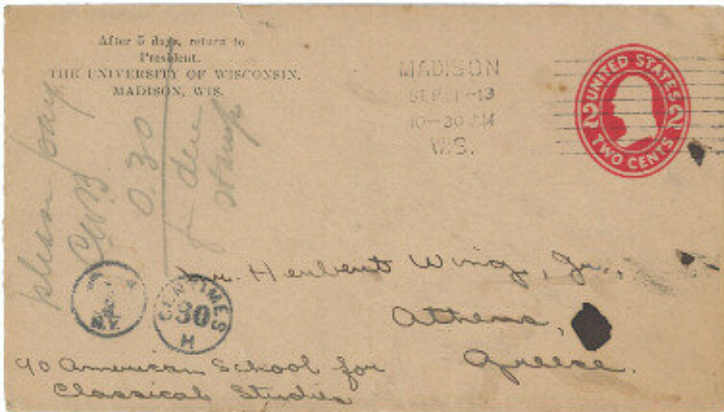 After 5 days, return to
President.
THE UNIVERSITY OF WISCONSIN,
MADISON, WIS.
MADISON
10-30 AM
WIS.
UNITED STATES
2 2
TWO CENTS
please pay
0.30
for due
stamp
T
N.Y.
CENTIMES
30
H
Mr. Herbert Wing, Jr.,
Athens,
Greece.
c/o American School for
Classical Studies